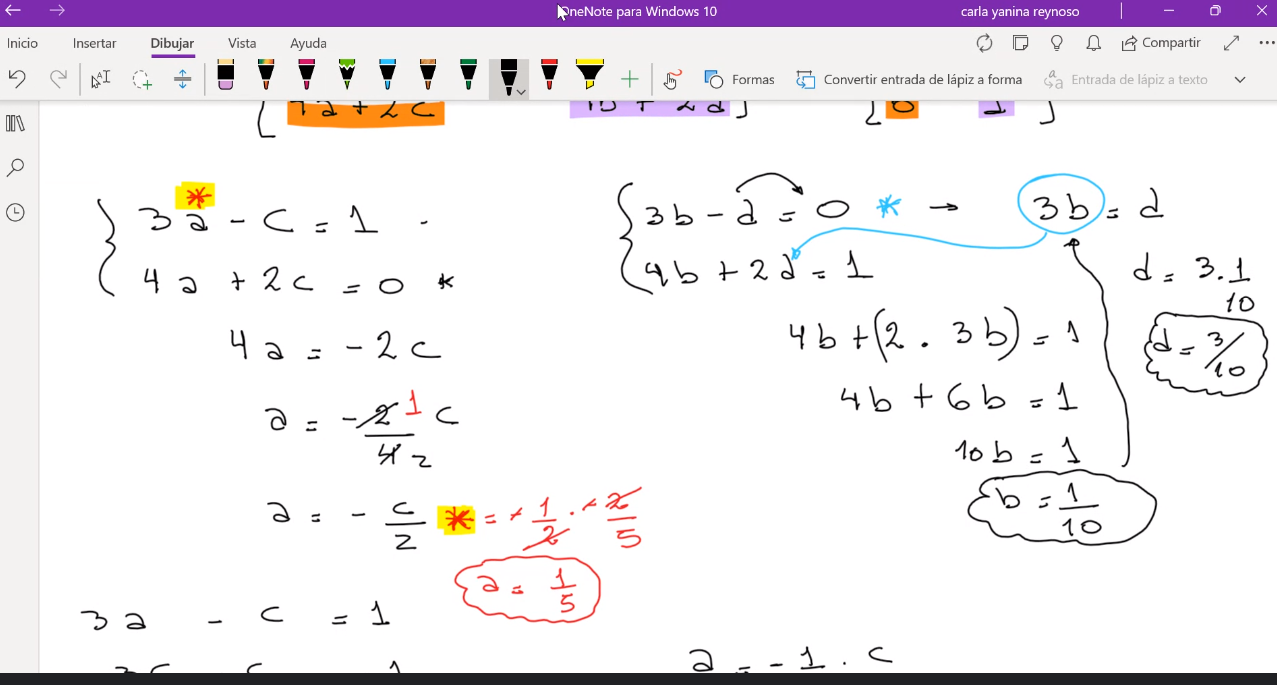 OneNote para Windows 10
carla yanina reynoso
Inicio Insertar Dibujar Vista Ayuda
Compartir
Formas Convertir entrada de lápiz a forma Entrada de lápiz a texto
4a + 2c
4b + 2d
0 1
3a - c = 1
4a + 2c = 0 *
4a = -2c
a = -2/4 1/2 c
a = - c/2 * = - 1/2 . - 2/5
a = 1/5
3a - c = 1
3b - d = 0 * → 3b = d
4b + 2d = 1
d = 3 . 1/10
d = 3/10
4b + (2 . 3b) = 1
4b + 6b = 1
10b = 1
b = 1/10
a = - 1 . c